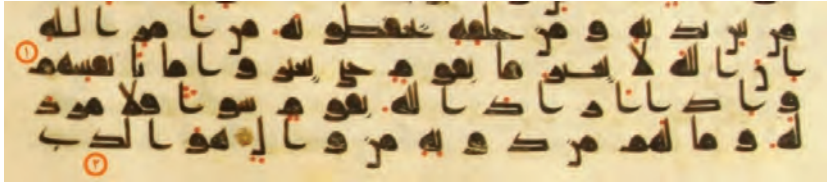 من بين يديه ومن خلفه يحفظونه من امر الله
ان الله لا يغير ما بقوم حتى يغيروا ما بانفسهم ١
واذا اراد الله بقوم سوا فلا مرد
له وما لهم من دونه من وال هو الذي
٢